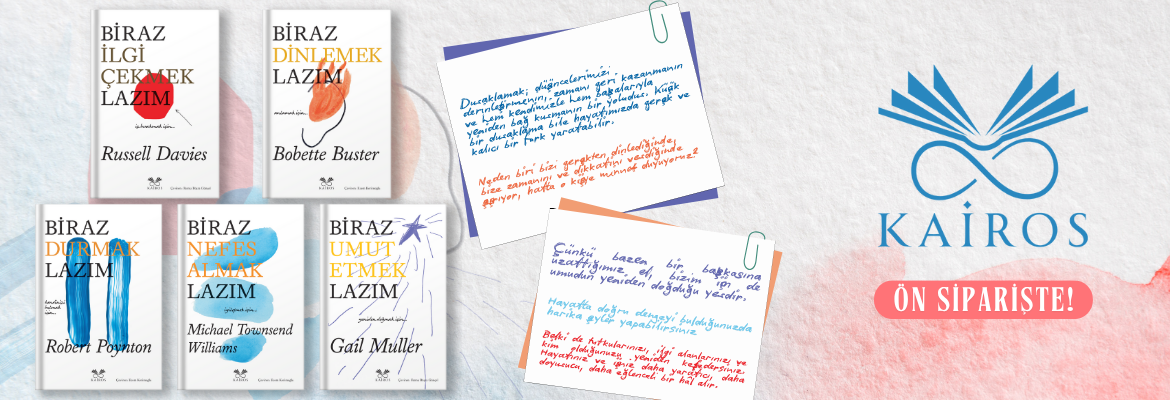 BİRAZ
İLGİ
ÇEKMEK
LAZIM
Russell Davies
KAİROS
BİRAZ
DİNLEMEK
LAZIM
anlamak için...
Bobette Buster
KAİROS
BİRAZ
DURMAK
LAZIM
kendini
bulmak
için...
Robert Poynton
KAİROS
BİRAZ
NEFES
ALMAK
LAZIM
iyileşmek için...
Michael Townsend
Williams
KAİROS
BİRAZ
UMUT
ETMEK
LAZIM
yeniden doğmak için...
Gail Muller
KAİROS
Duraklamak; düşüncelerimizi
derinleştirmenin, zamanı geri kazanmanın
ve hem kendimizle hem başkalarıyla
yeniden bağ kurmanın bir yoludur. Küçük
bir duraklama bile hayatımızda gerçek ve
kalıcı bir fark yaratabilir.
Neden biri bizi gerçekten dinlediğinde,
bize zamanını ve dikkatini verdiğinde
şaşırıyor, hatta o kişiye minnet duyuyoruz?
Çünkü bazen bir başkasına
uzattığımız el, bizim için de
umudun yeniden doğduğu yerdir.
Hayatta doğru dengeyi bulduğunuzda
harika şeyler yapabilirsiniz
Belki de tutkularınızı, ilgi alanlarınızı ve
kim olduğunuzu yeniden keşfedersiniz.
Hayatınız ve işiniz daha yaratıcı, daha
doyurucu, daha eğlenceli bir hâl alır.
KAİROS
ÖN SİPARİŞTE!